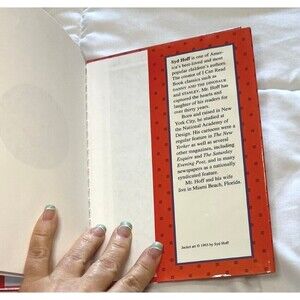 Syd Hoff is one of Amer-
ica's best-loved and most
popular children's authors.
The creator of I Can Read
Book classics such as
DANNY AND THE DINOSAUR
and STANLEY, Mr. Hoff has
captured the hearts and
laughter of his readers for
over thirty years.
Born and raised in New
York City, he studied at
the National Academy of
Design. His cartoons were a
regular feature in The New
Yorker as well as several
other magazines, including
Esquire and The Saturday
Evening Post, and in many
newspapers as a nationally
syndicated feature.
Mr. Hoff and his wife
live in Miami Beach, Florida.
Jacket art © 1993 by Syd Hoff